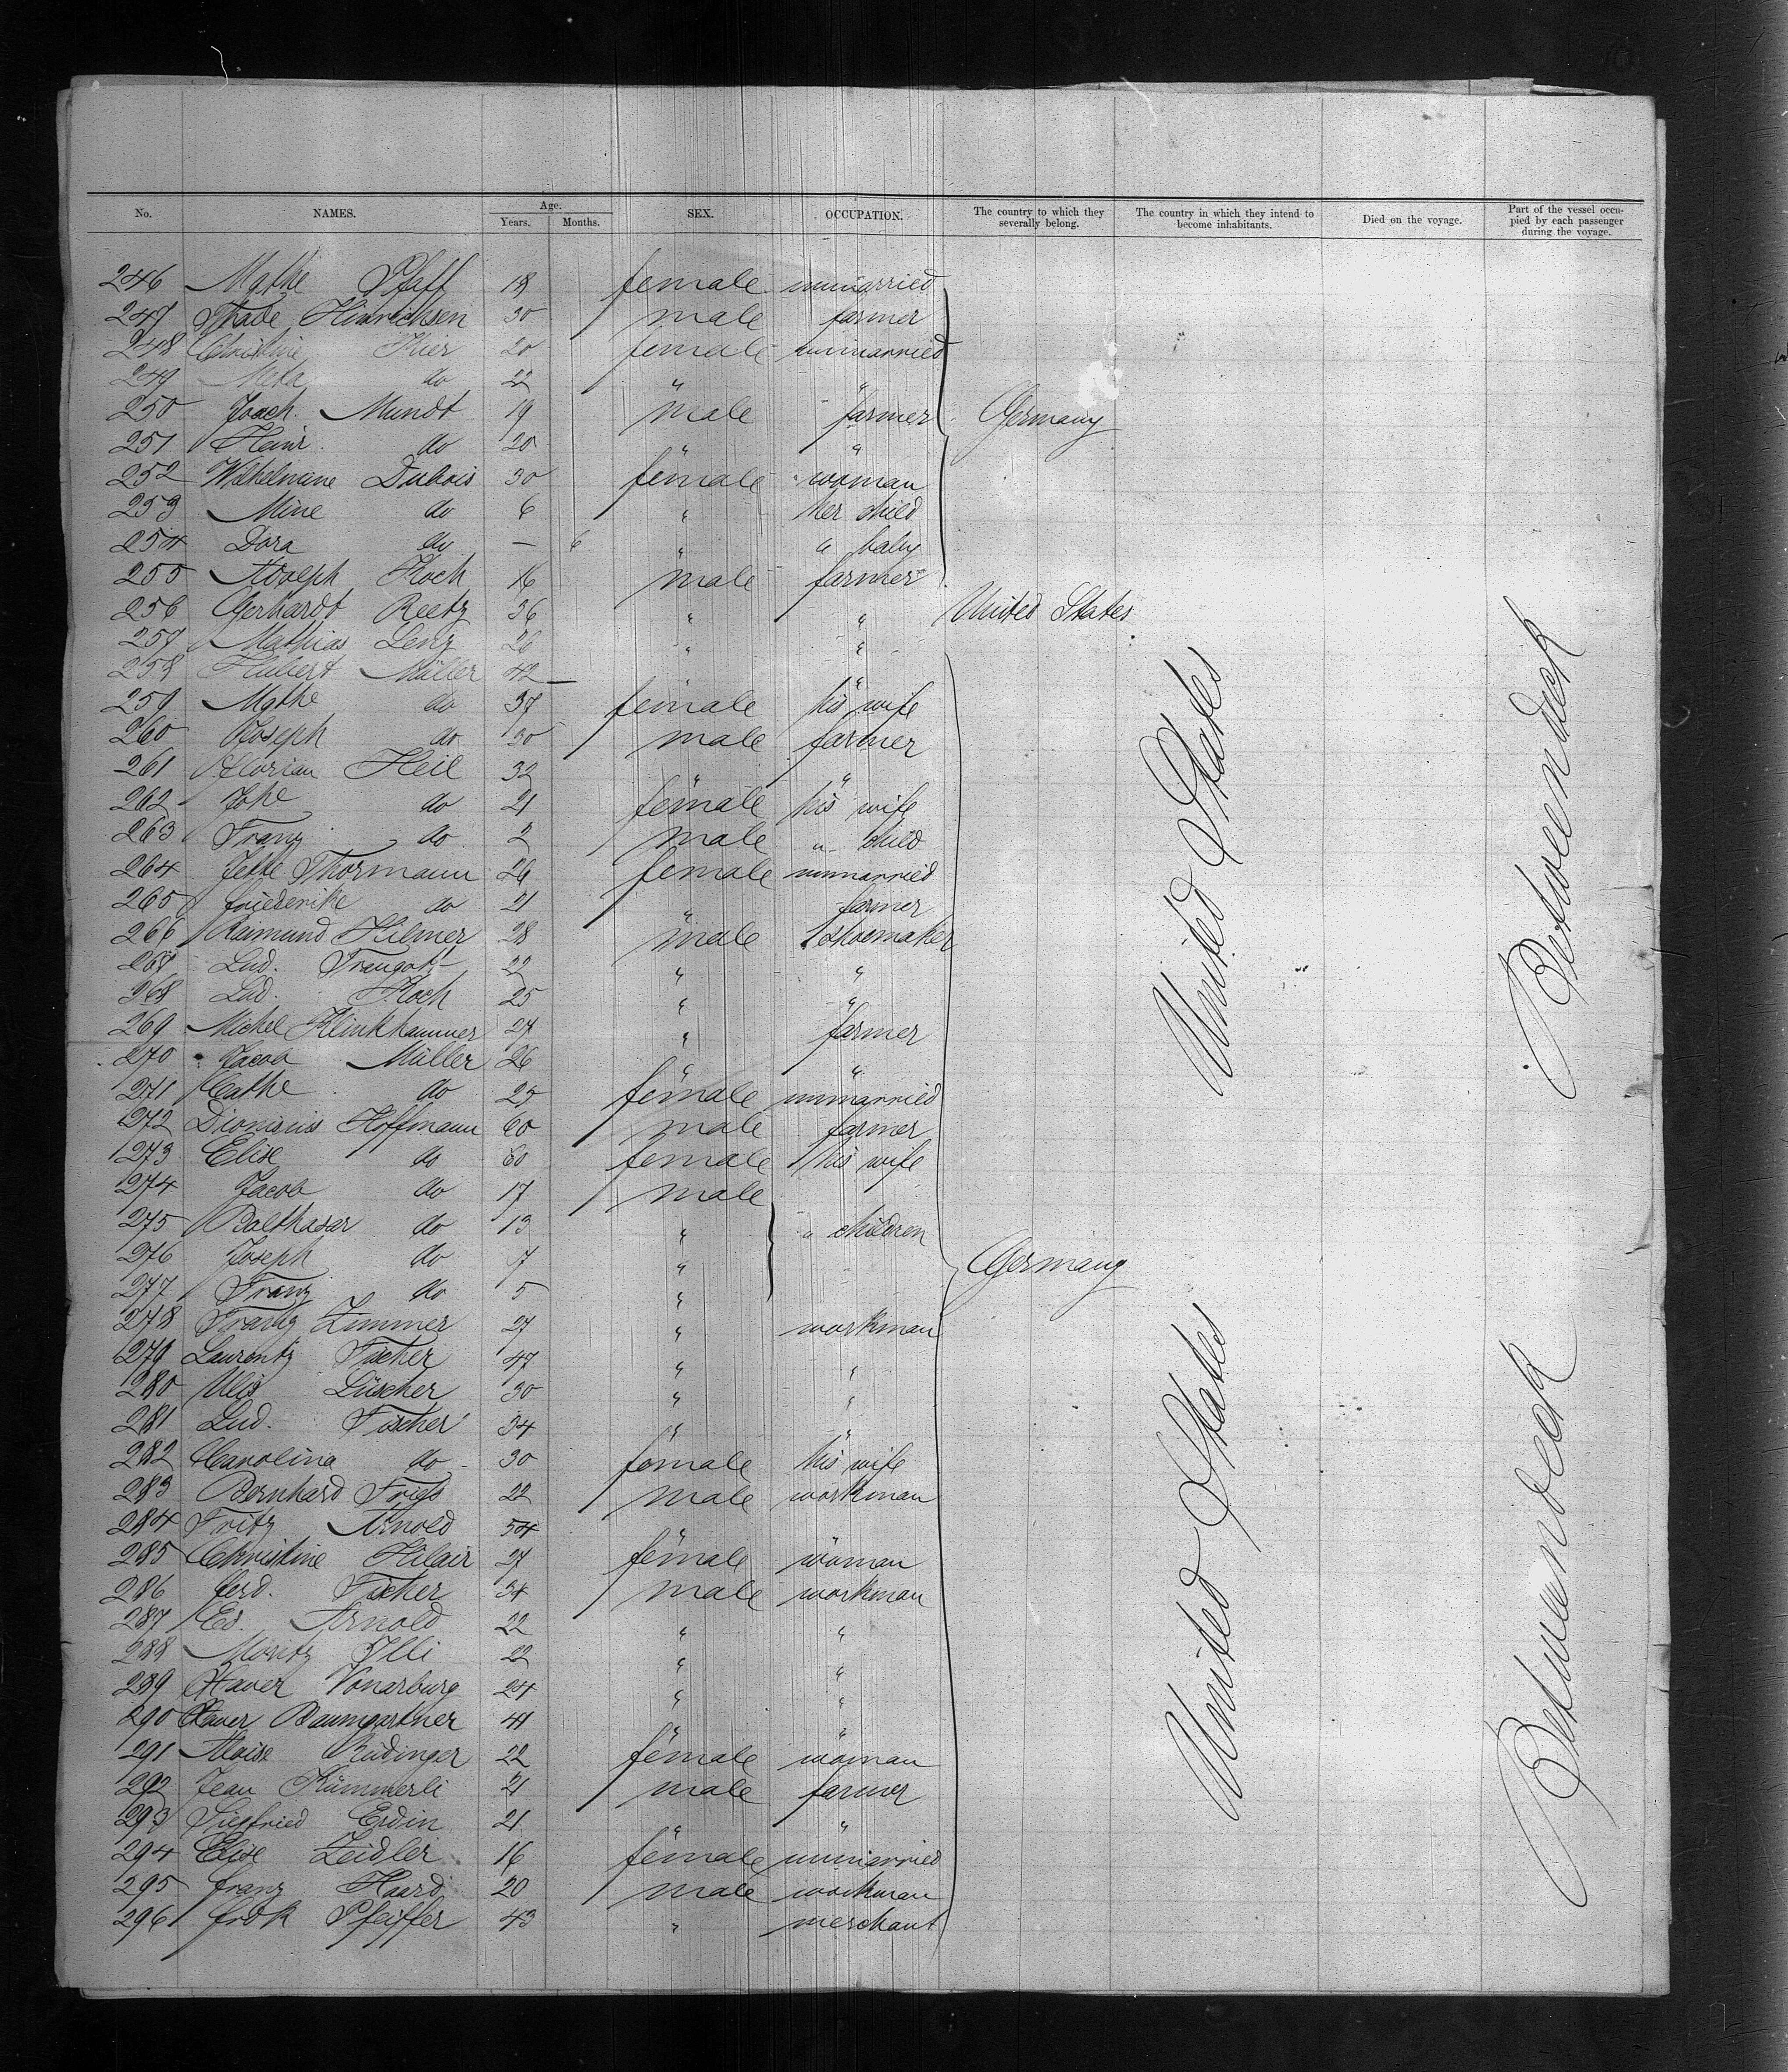 No. NAMES. Age. Years. Months. SEX. OCCUPATION. The country to which they severally belong. The country in which they intend to become inhabitants. Died on the voyage. Part of the vessel occupied by each passenger during the voyage.
246 Mgthe Pfaff 18 female unmarried
247 Thade Hinrichsen 30 male farmer
248 Christine Kier 20 female unmarried
249 Meta do 22 " "
250 Joach. Mundt 19 male farmer Germany
251 Heinr. do 20 " "
252 Wilhelmine Dubois 30 female woman
253 Mine do 6 " her child
254 Dora do — 6 " " baby
255 Adolph Koch 16 male farmer
256 Gerhardt Reetz 36 " " United States
257 Mathias Lenz 26 " "
258 Hubert Müller 42 " "
259 Mgthe do 37 female his wife
260 Joseph do 30 male farmer
261 Florian Heil 32 " "
262 Johe do 21 female his wife
263 Franz do 2 male " child
264 Jette Thormann 26 female unmarried
265 Friederike do 21 " farmer
266 Raimund Hilmer 28 male shoemaker
267 Lud. Traugott 22 " "
268 Lud. Koch 25 " "
269 Michel Klinkhammer 24 " farmer
270 Jacob Müller 26 " "
271 Cathe do 25 female unmarried
272 Dionisius Hoffmann 60 male farmer
273 Elise do 60 female his wife
274 Jacob do 17 male
275 Balthasar do 13 " " children
276 Joseph do 7 " Germany
277 Franz do 5 "
278 Franz Zimmer 27 " workman
279 Laurentz Fischer 47 " "
280 Ulis Lüscher 30 " "
281 Lud. Fischer 34 " "
282 Carolina do 30 female his wife
283 Bernhard Fries 22 male workman
284 Fritz Arnold 54 " "
285 Christine Hilair 27 female woman
286 Ferd. Fischer 34 male workman
287 Ed. Arnold 22 " "
288 Moritz Illi 22 " "
289 Xaver Vonarburg 24 " "
290 Xaver Baumgartner 41 " "
291 Aloise Rüdinger 22 female woman
292 Jean Kümmerli 21 male farmer
293 Siegfried Erdin 21 " "
294 Elise Zeidler 16 female unmarried
295 Franz Haard 20 male workman
296 Frdk Pfeiffer 43 " merchant
United States
United States
Betweendeck
Betweendeck